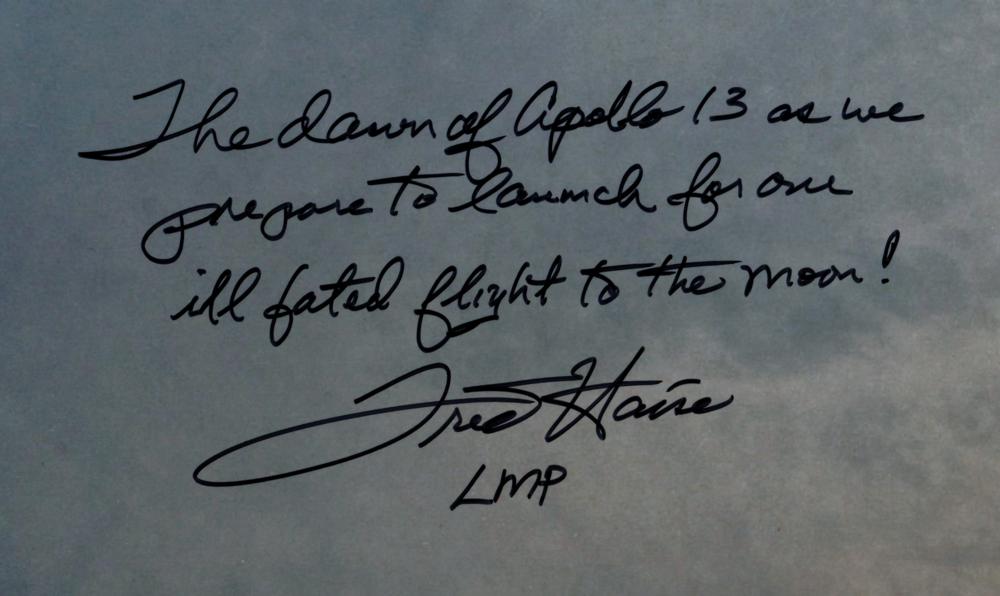 The dawn of Apollo 13 as we
prepare to launch for our
ill fated flight to the moon!
Fred Haise
LMP